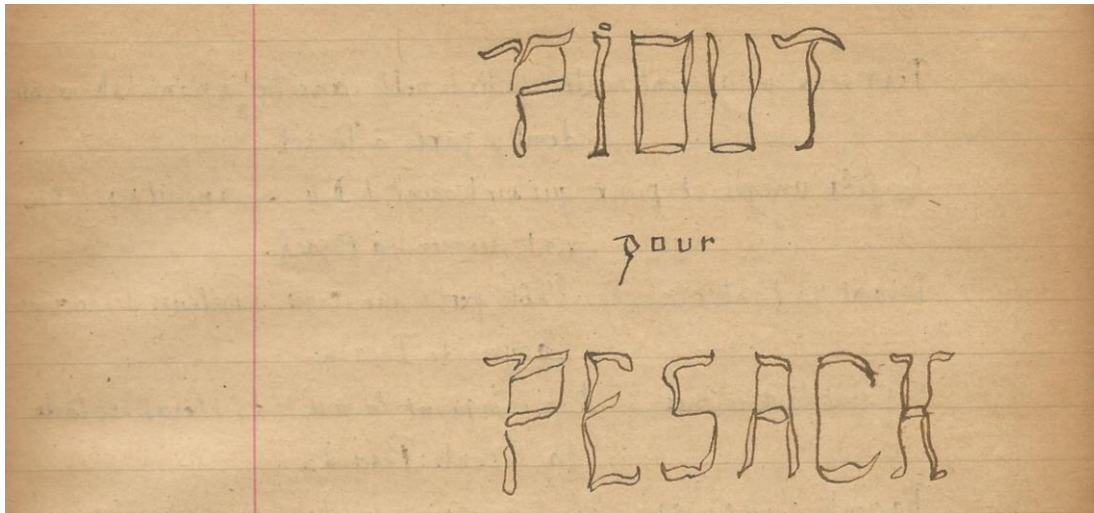 PiOUT
pour
PESACH